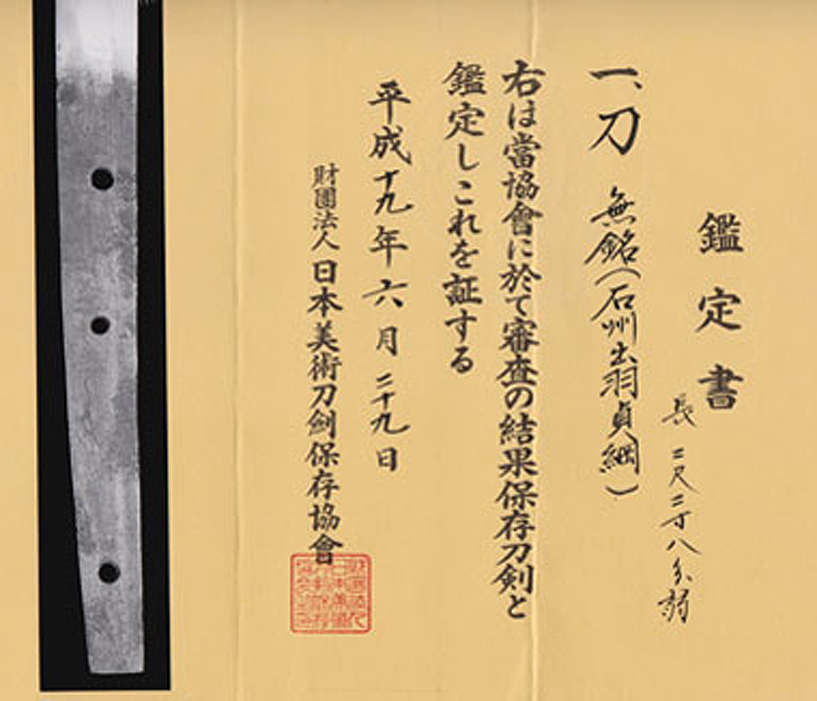 鑑定書
長二尺二寸八分弱
一、刀 無銘(石州出羽貞綱)
右は當協會に於て審査の結果保存刀剣と
鑑定しこれを証する
平成十九年六月二十九日
財團法人日本美術刀剣保存協會